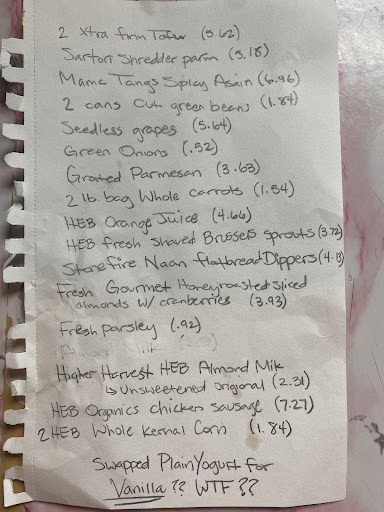 2 Xtra firm Tofu (5.62)
Sartori Shredder parm (5.18)
Mama Tangs Spicy Asain (6.96)
2 cans Cut green beans (1.84)
Seedless grapes (5.64)
Green Onions (.52)
Grated Parmesan (3.63)
2 lb. bag Whole carrots (1.54)
HEB Orange Juice (4.66)
HEB fresh shaved Brussels sprouts (3.72)
Stonefire Naan flatbread Dippers (4.13)
Fresh Gourmet Honeyroasted sliced
almonds w/ cranberries (3.93)
Fresh parsley (.92)
Higher Harvest HEB Almond Milk
↳ Unsweetened original (2.31)
HEB Organics chicken sausage (7.27)
2 HEB Whole Kernal Corn (1.84)
Swapped Plain Yogurt for
Vanilla?? WTF??